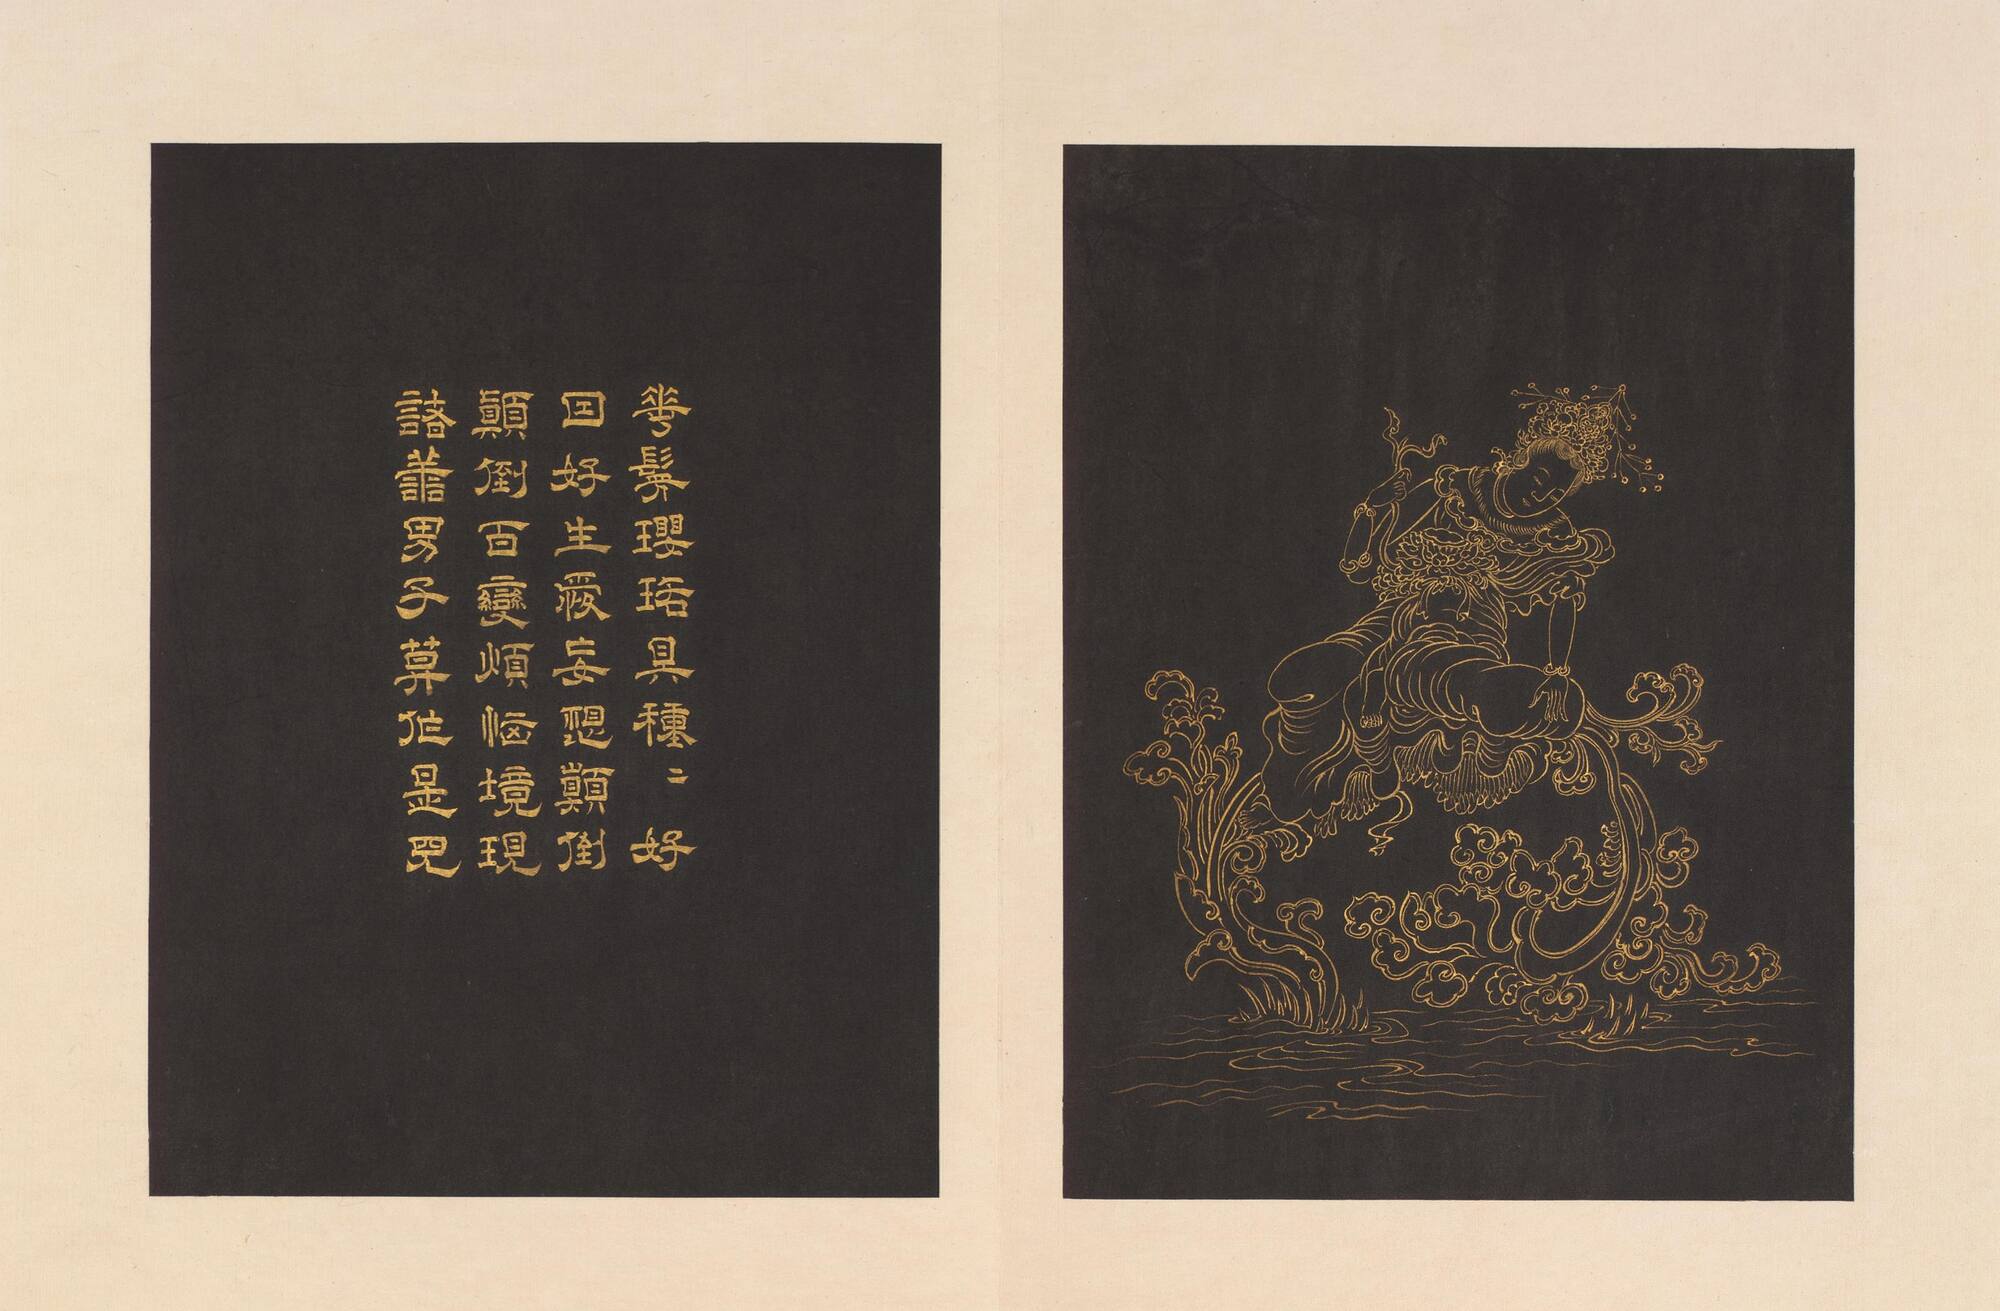 華鬘瓔珞具種〻好
囙好生愛妄想顛倒
顛倒百變煩惱境現
諸善男子莫作是見